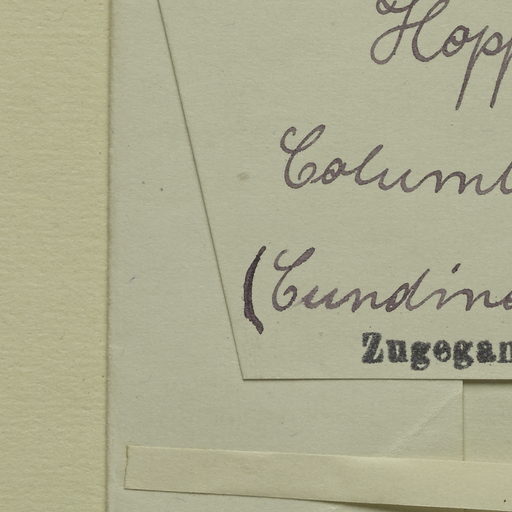 Hopp
Columb
(Cundina
Zugegan